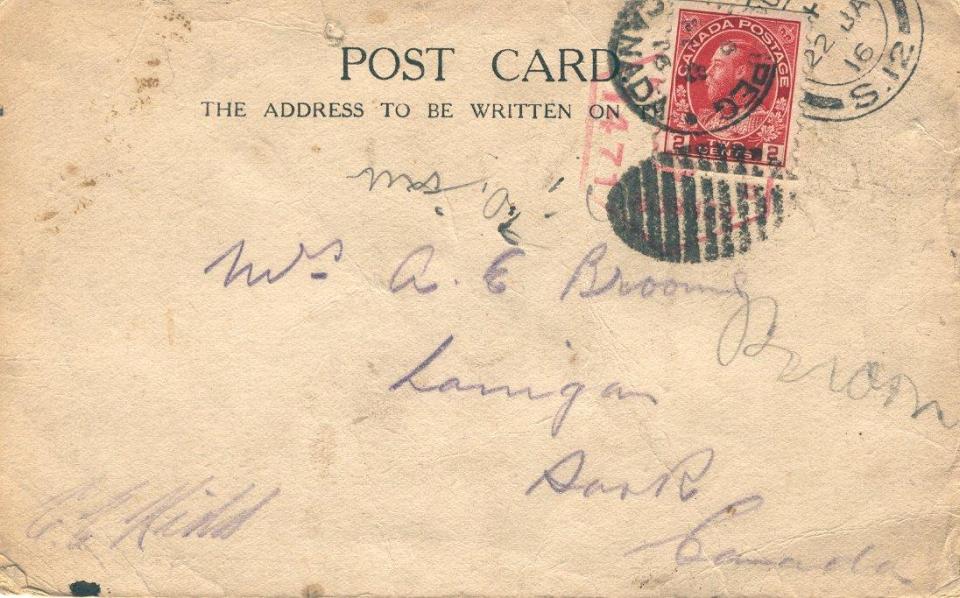 POST CARD
THE ADDRESS TO BE WRITTEN ON
CANADA POSTAGE
2 TWO CENTS 2
CANADA
DEC
22 JA
16
S.12
1471
Mrs A. E Broom
Lanigan
Sask
Canada
C E Kidd